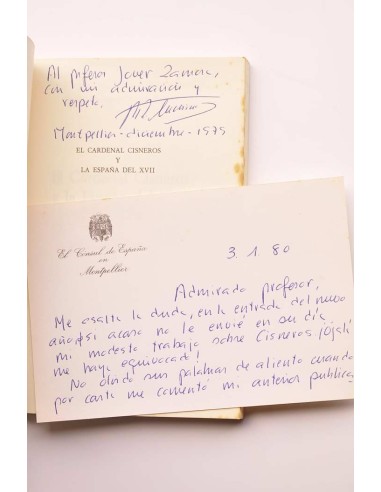 Al profesor Jover Zamora,
con mi admiración y
respeto.
Montpellier - diciembre - 1979
EL CARDENAL CISNEROS
Y
LA ESPAÑA DEL XVII
El Cónsul de España
en
Montpellier
3. 1. 80
Admirado profesor,
Me asalta la duda, en la entrada del nuevo
año, si acaso no le envié en su día
mi modesto trabajo sobre Cisneros ¡Ojalá
me haya equivocado!
No olvido sus palabras de aliento cuando
por carta me comentó mi anterior publicac